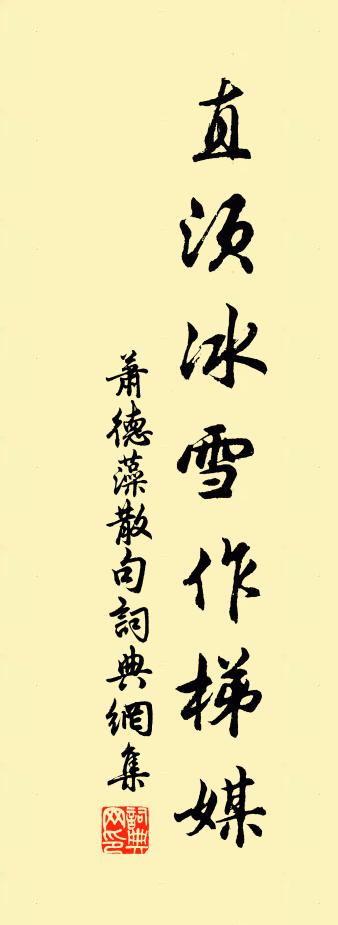 直須冰雪作梯媒
蕭德藻散句詞典網集
詞典网印